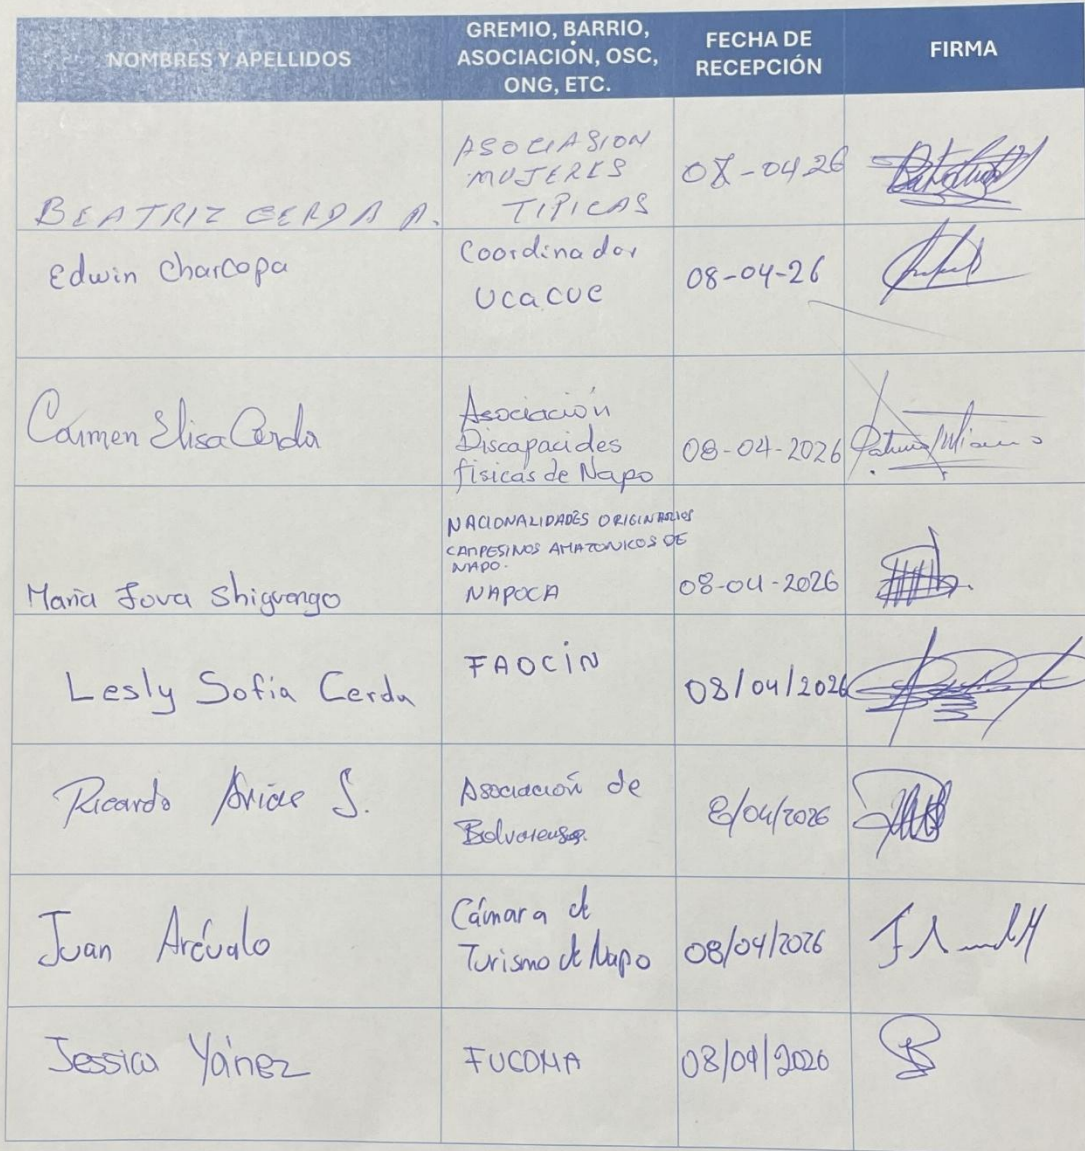 NOMBRES Y APELLIDOS
GREMIO, BARRIO,
ASOCIACIÓN, OSC,
ONG, ETC.
FECHA DE
RECEPCIÓN
FIRMA
BEATRIZ CERDA A.
ASOCIASION
MUJERES
TIPICAS
08-04-26
Edwin Charcopa
Coordinador
Ucacue
08-04-26
Carmen Elisa Cerda
Asociación
Discapacides
físicas de Napo
08-04-2026
María Jova Shiguango
NACIONALIDADES ORIGINARIOS
CAMPESINOS AMAZONICOS DE
NAPO.
NAPOCA
08-04-2026
Lesly Sofía Cerda
FAOCIN
08/04/2026
Ricardo Arias S.
Asociación de
8/04/2026
Juan Arévalo
Cámara de
Turismo de Napo
08/04/2026
Jessica Yánez
FUCOMA
08/04/2026